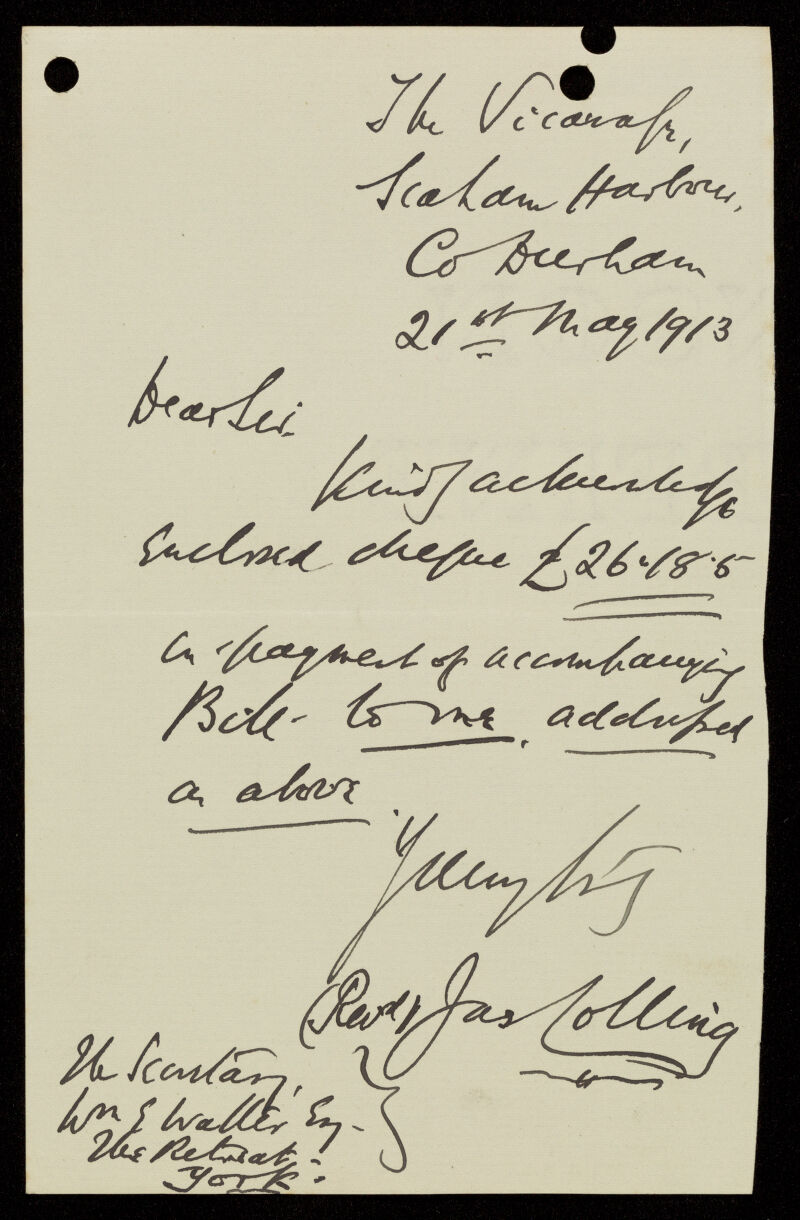 The Vicarage,
Seaham Harbour,
Co Durham
21st May 1913
Dear Sir.
Kindly acknowledge
Enclosed cheque £26.18.5
in payment of accompanying
Bill - to me, addressed
as above.
Yours
(Revd) Jas Colling
The Secretary,
Wm E Waller Esq -
The Retreat
York.